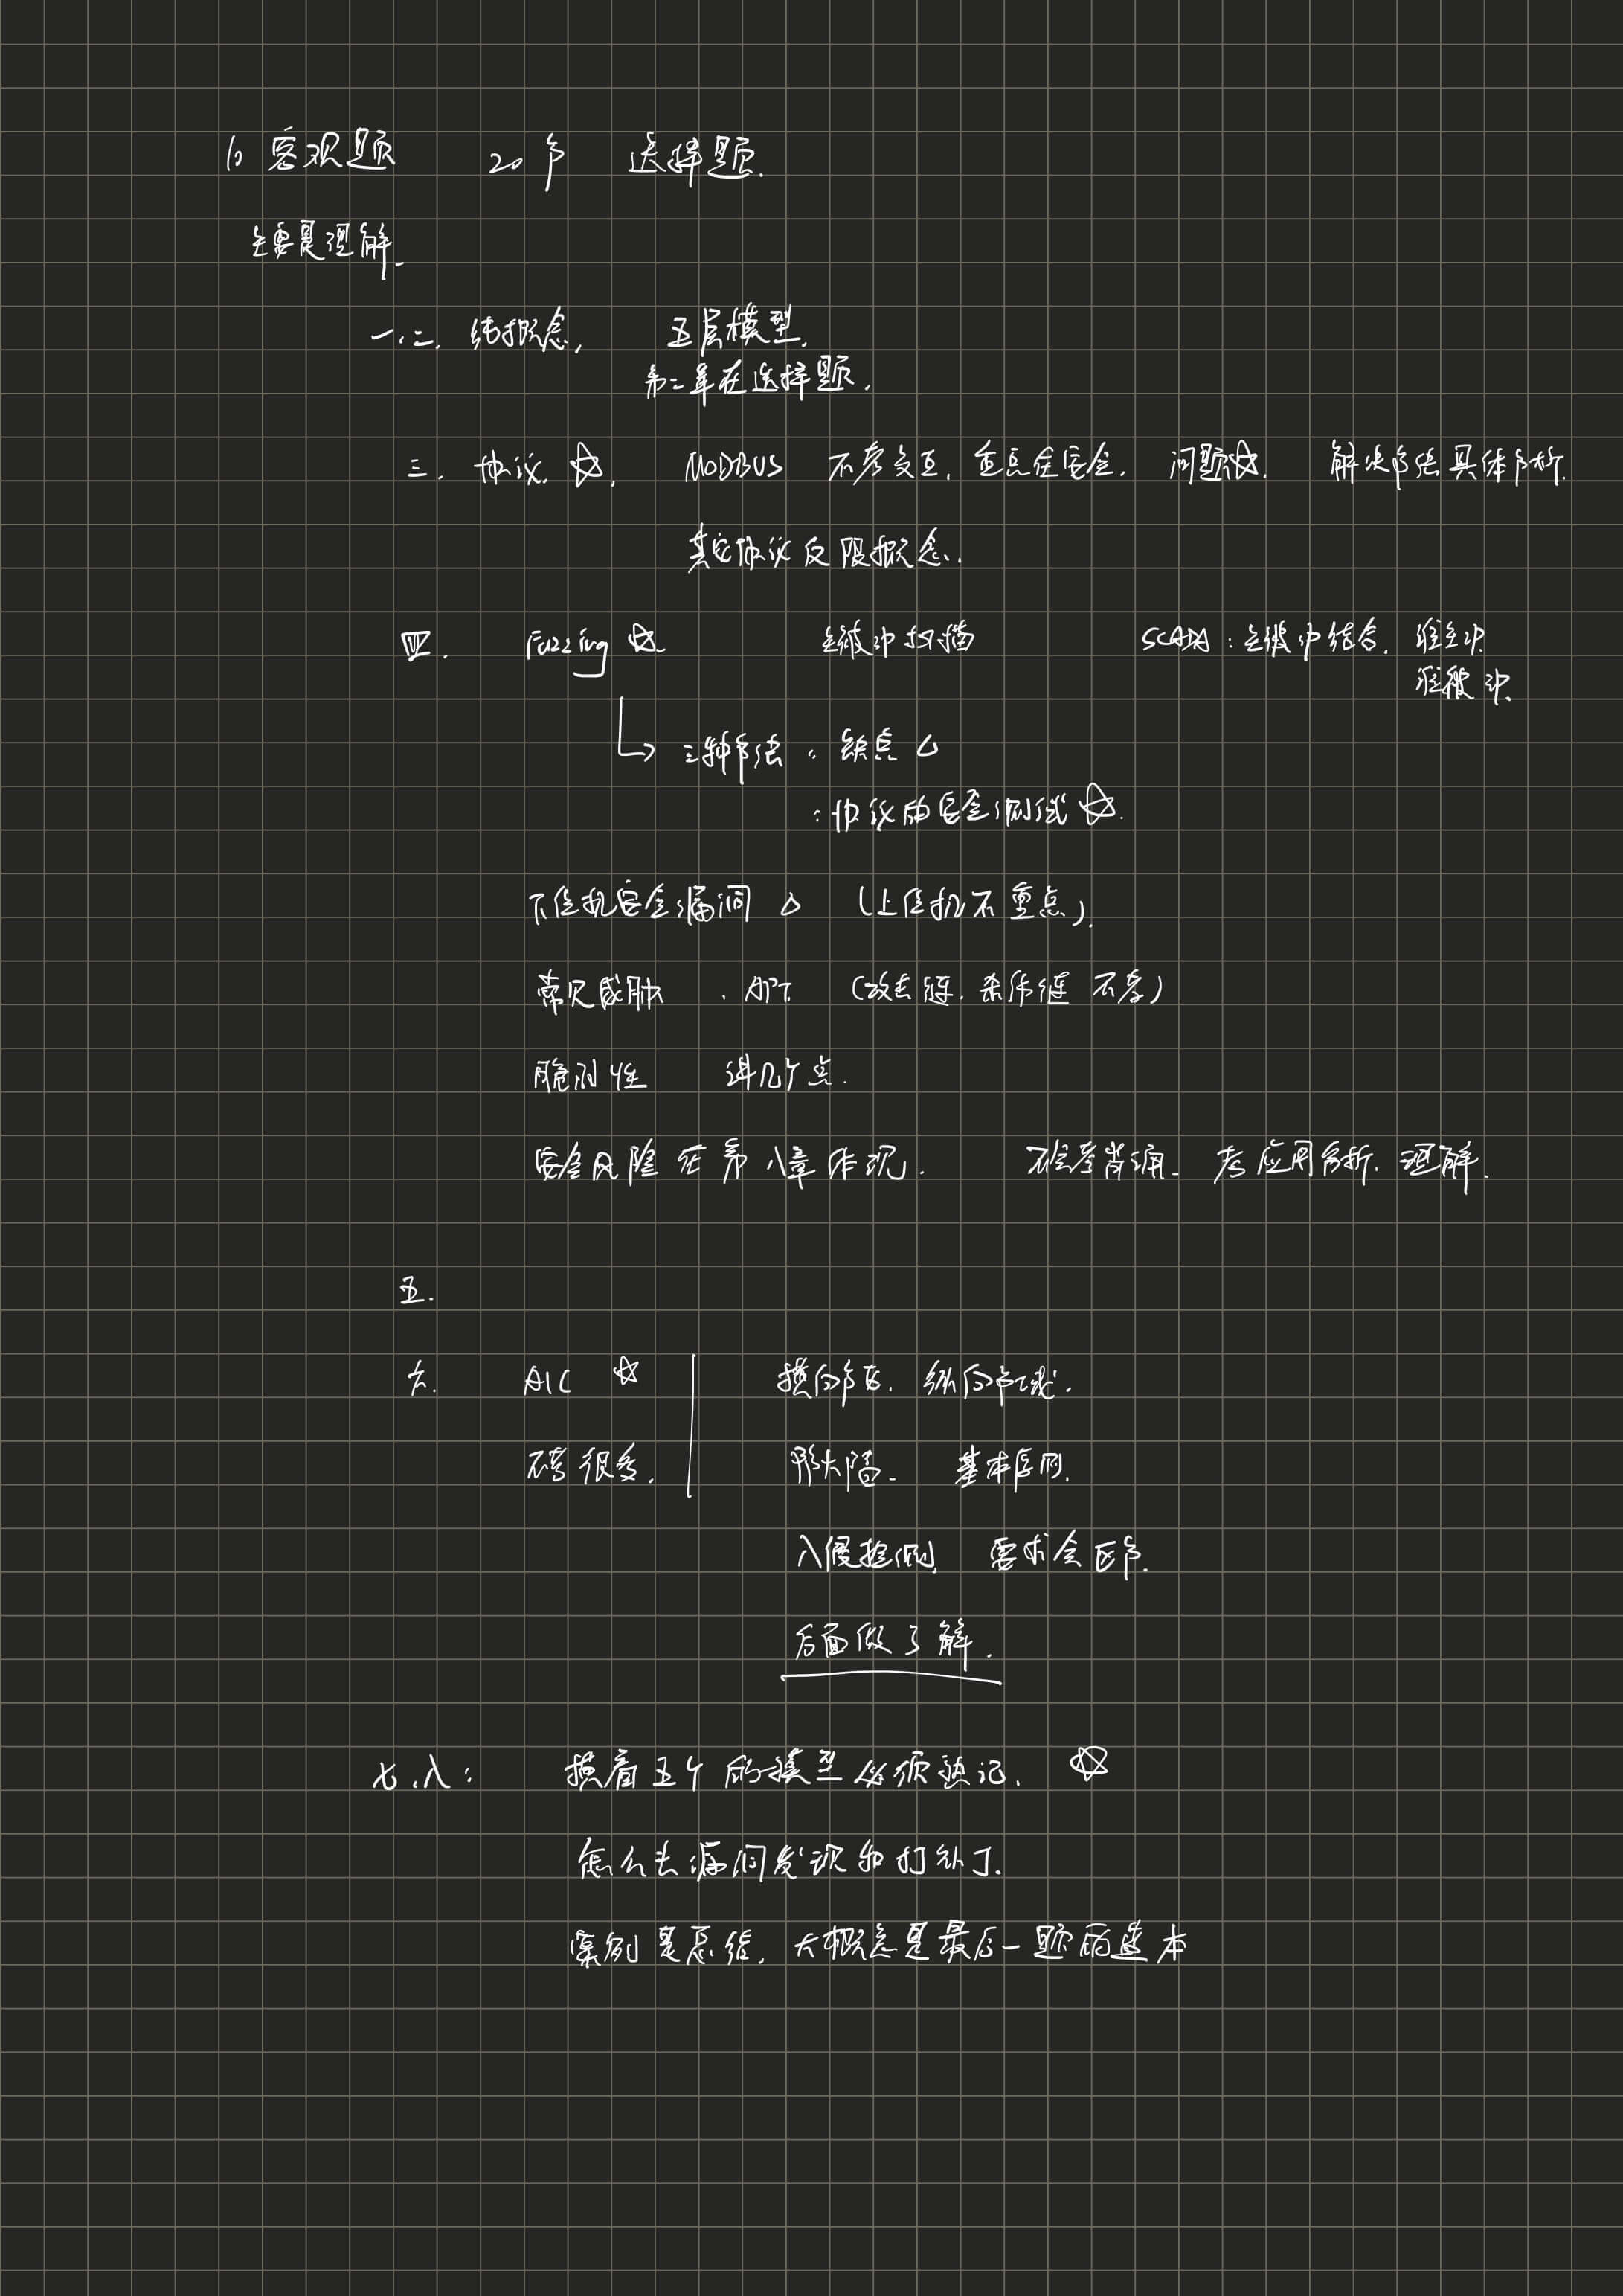 1) 客观题 20分 选择题.
主要是理解.
一.二. 纯概念, 五层模型,
第二章在选择题.
三. 协议. ☆. MODBUS 不考交互, 重点在安全. 问题☆. 解决方法具体分析.
其它协议仅限概念.
四. Fuzzing ☆ 主被动扫描 SCADA: 主被动结合. 谁主动.
谁被动.
↳ 三种方法: 缺点 △
: 协议的安全测试 ☆.
下位机安全漏洞 △ (上位机不重点).
常见威胁 . APT. (攻击链. 杀伤链 不考)
脆弱性 讲几个点.
安全风险在第八章体现. 不会考背诵. 考应用分析. 理解.
五.
六. AIC ☆ 横向分区. 纵向分域.
不考很多. 防火墙. 基本原则.
入侵检测, 要求会区分.
后面做了解.
七.八: 摸着五个的模型必须熟记. ☆
怎么去漏洞发现和打补丁.
案例是总结, 大概会是最后一题的蓝本